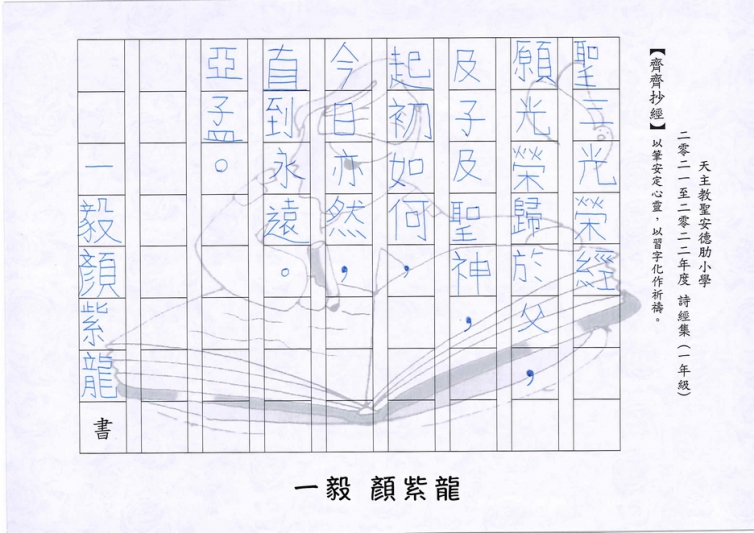 天主教聖安德肋小學
二零二一至二零二二年度 詩經集（一年級）
【齊齊抄經】以筆安定心靈，以習字化作祈禱。
聖三光榮經
願光榮歸於父，
及子及聖神，
起初如何，
今日亦然，
直到永遠。
亞孟。
一毅顏紫龍書
一毅 顏紫龍